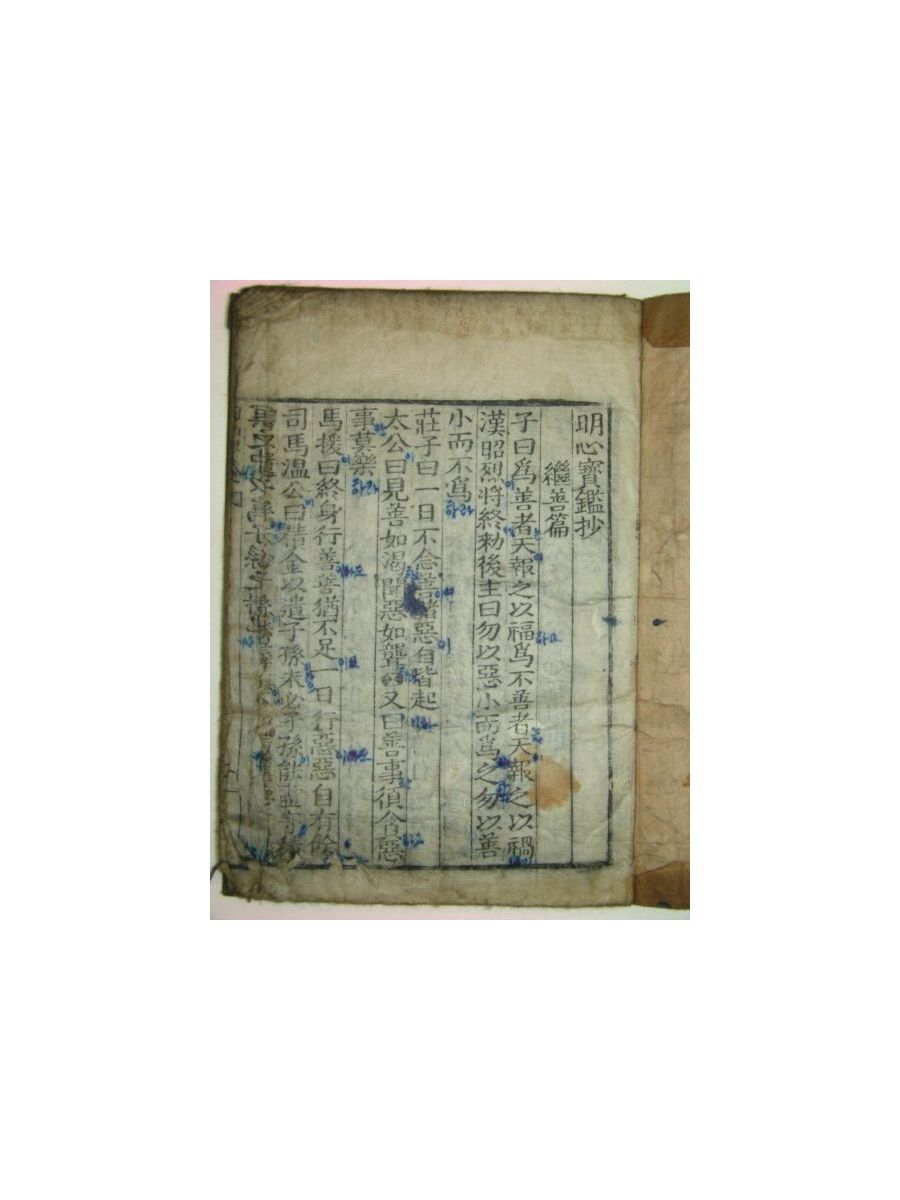 明心寶鑑抄
繼善篇
子曰爲善者天報之以福爲不善者天報之以禍
漢昭烈將終勅後主曰勿以惡小而爲之勿以善
小而不爲하라
莊子曰一日不念善諸惡自皆起
太公曰見善如渴聞惡如聾又曰善事須貪惡
事莫樂하라
馬援曰終身行善善猶不足一日行惡惡自有餘
司馬溫公曰積金以遺子孫未必子孫能盡守積